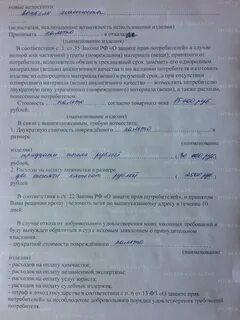 новые недостатки
(недостатки, исключающие возможность использования изделия)
Принимать пальто в
(наименование изделия)
В соответствии с т. ст.35 Закона РФ «О защите прав потребителей» в случае
полной или частичной утраты (повреждения) материала (вещи), принятого от
потребителя, исполнитель обязан в трехдневный срок заменить его однородным
материалом (вещью) аналогичного качества и по желанию потребителя изготовить
изделие из однородного материала (вещи) в разумный срок, а при отсутствии
однородного материала (вещи) аналогичного качества – возместить потребителю
двукратную цену утраченного (поврежденного) материала (вещи), а также расходы,
понесенные потребителем.
Стоимость пальто согласно товарного чека 15 000 руб.
(наименование изделия)
В связи с вышеизложенным, требую возместить:
1. Двукратную стоимость повреждённого пальто
(наименование
изделия)
тридцать тысяч рублей , 30 000 руб.
2. Расходы на оплату химчистки в размере
две тысячи рублей , руб.
В соответствии с ст. 22 Закона РФ «О защите прав потребителей», о принятом
Вами решении прошу уведомить меня по вышеуказанному адресу в течение 10
дней.
В случае отказа от добровольного удовлетворения моих законных требований я
буду вынужден обратиться в суд с исковым заявлением о принудительном
взыскании:
- двукратной стоимости повреждённого пальто
(наименование
изделия)
- расходов на оплату химчистки;
- расходов на оплату независимой экспертизы;
- расходов на оплату услуг юристов;
- расходов на оплату услуг судебного представителя;
- компенсации морального вреда;
- штраф в доход государства в соответствии с п. 6 ст. 13 ФЗ «О защите прав
потребителей» за несоблюдение добровольного порядка удовлетворения требований
потребителя.